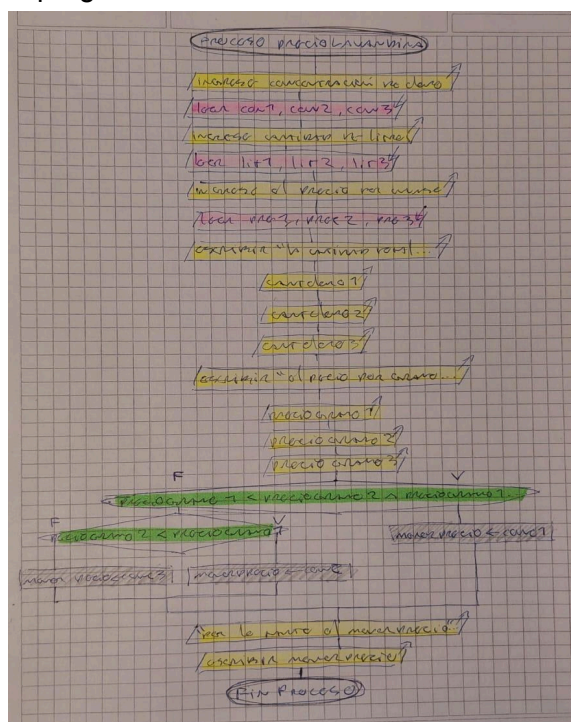 Proceso preciolavandina
ingrese concentracion de cloro
leer con1, con2, con3
ingrese
leer lit1, lit2, lit3
ingrese el precio por
leer pre1, prec2, pre3
escribir "la
cantcloro1
cantcloro2
cantcloro3
escribir "el precio por gramo...
preciogramo1
preciogramo2
preciogramo3
F V
preciogramo1 < preciogramo2 ^ preciogramo1...
F V
preciogramo2 < preciogramo
menorprecio ← cand1
menorprecio ←
"por lo tanto el menor precio"...
escribir menorprecio
FIN PROCESO